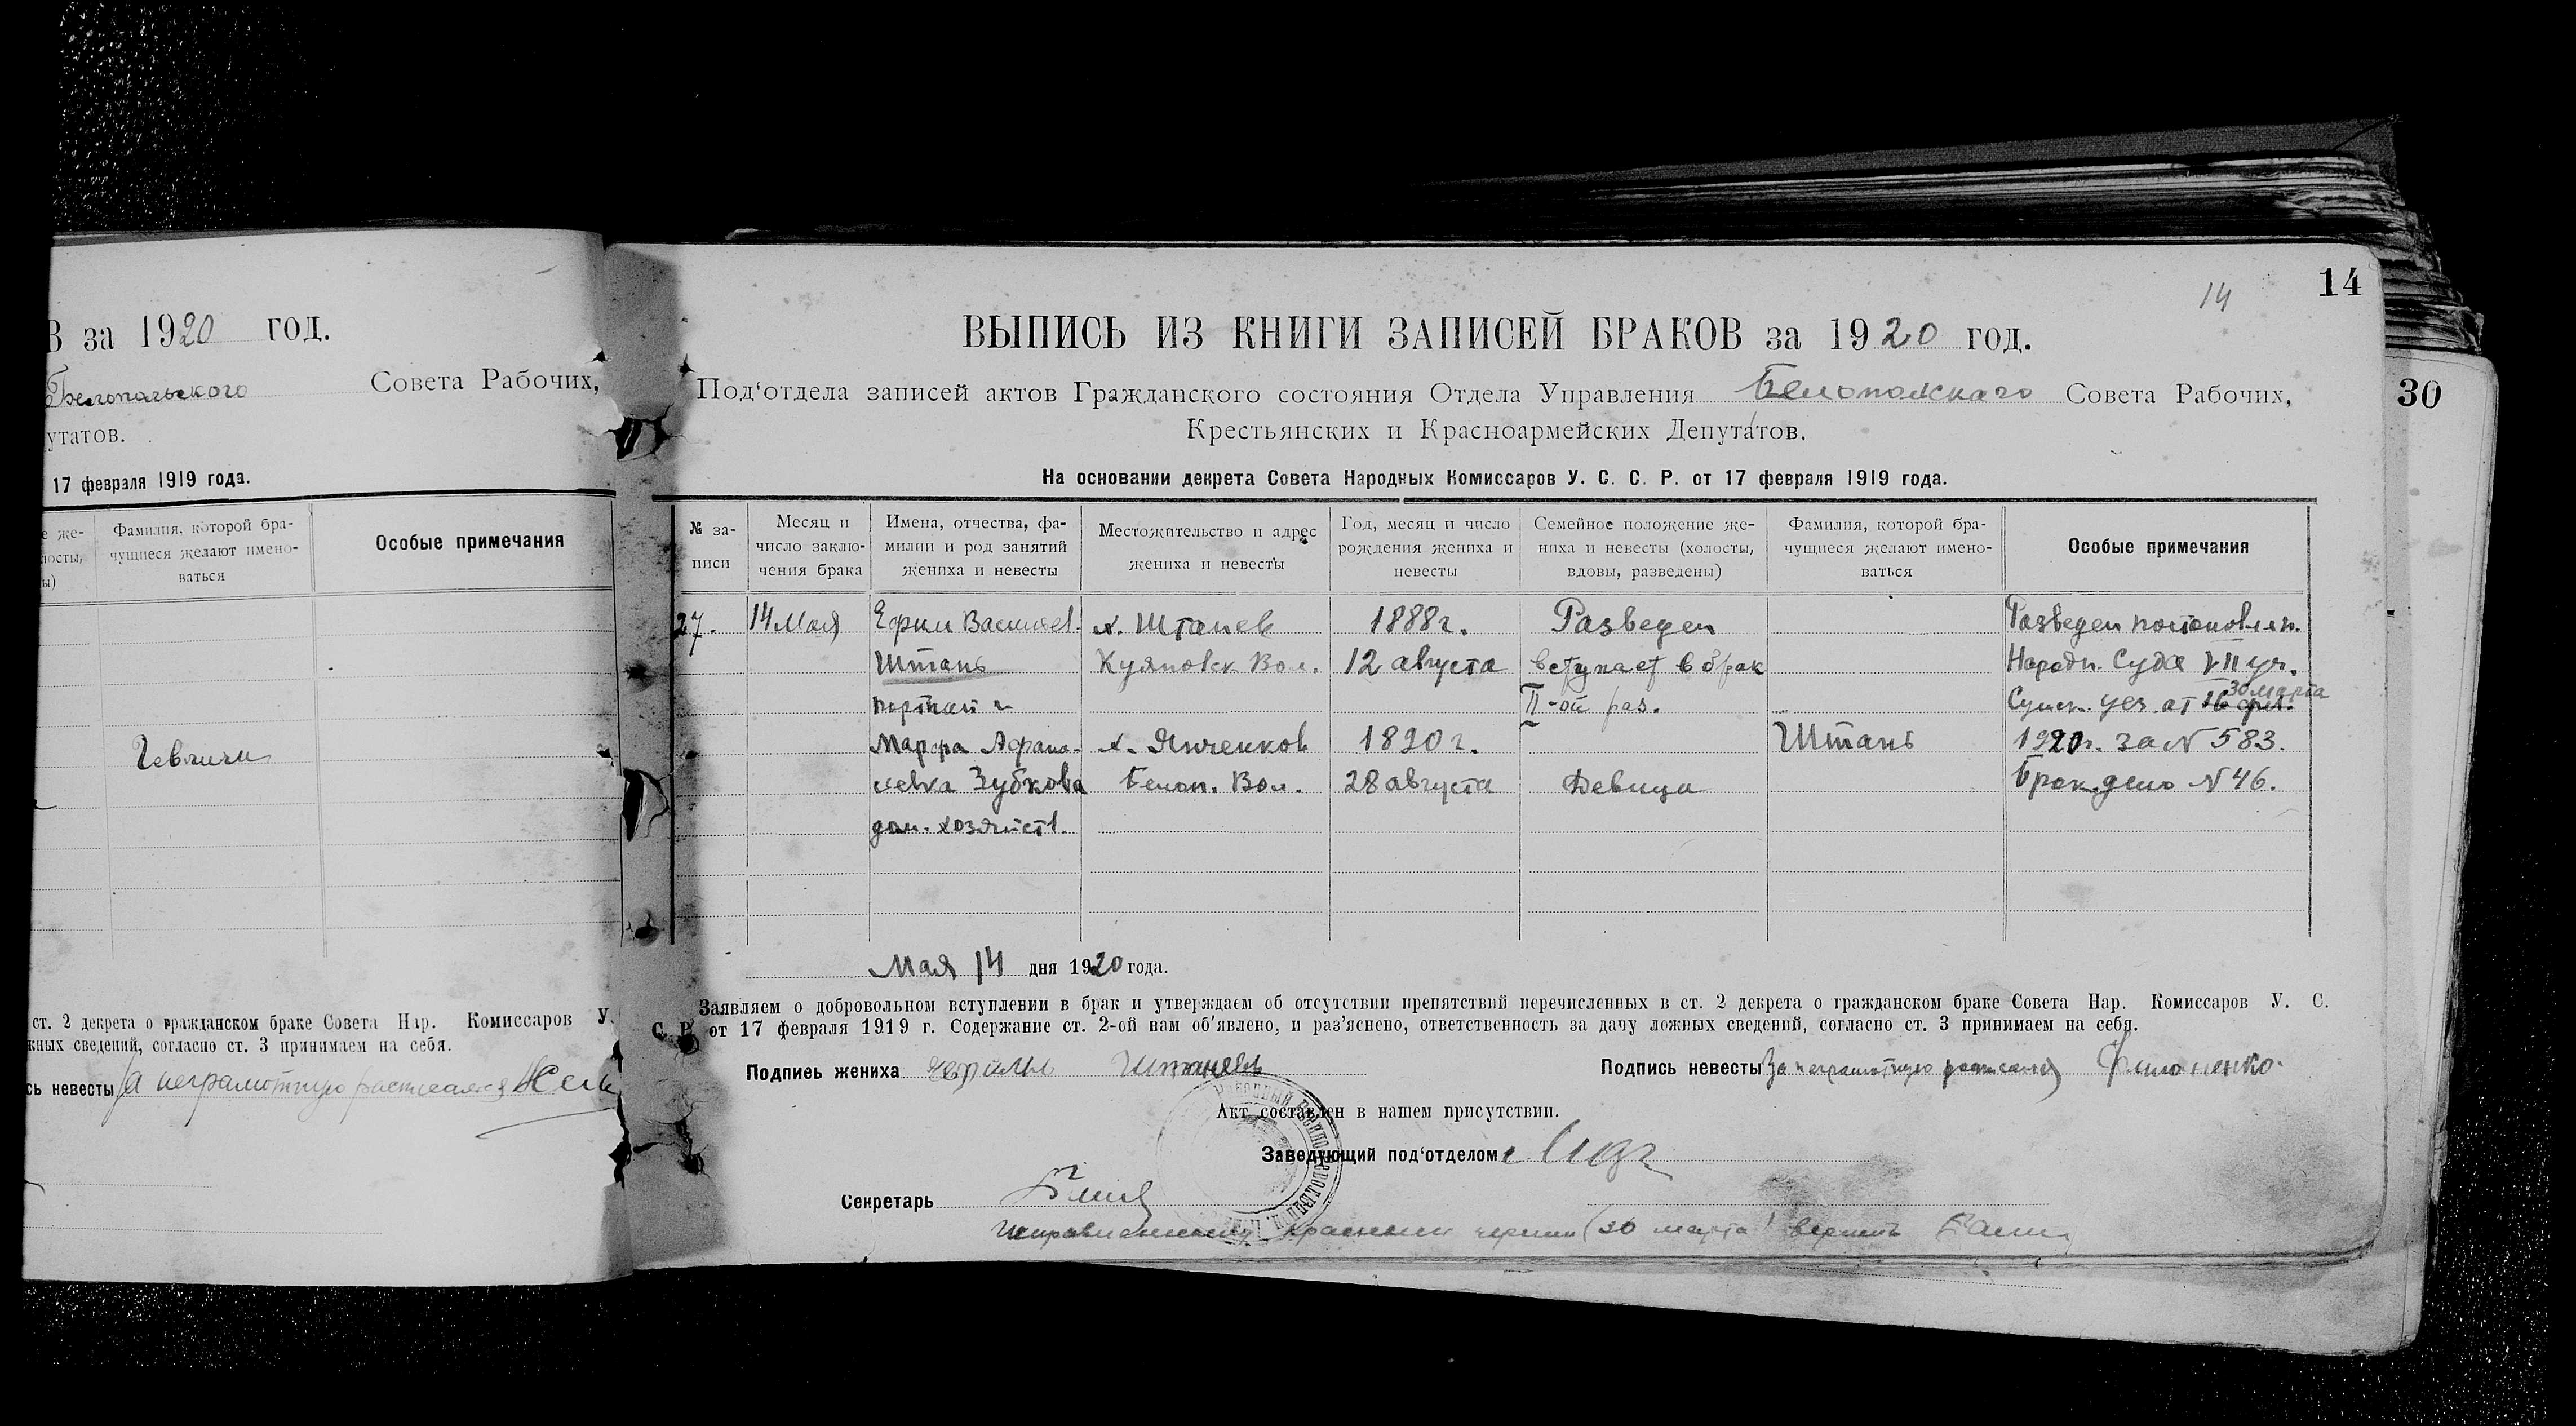 В за 1920 год.
Белопольского Совета Рабочих,
утатов.
17 февраля 1919 года.
е же-
лосты,
ы)
Фамилия, которой бра-
чущиеся желают имено-
ваться
Особые примечания
ст. 2 декрета о гражданском браке Совета Нар. Комиссаров У.
жных сведений, согласно ст. 3 принимаем на себя.
сь невесты За неграмотную расписался
14
14
30
ВЫПИСЬ ИЗ КНИГИ ЗАПИСЕЙ БРАКОВ за 1920 год.
Под‘отдела записей актов Гражданского состояния Отдела Управления Белопольскаго Совета Рабочих,
Крестьянских и Красноармейских Депутатов.
На основании декрета Совета Народных Комиссаров У. С. С. Р. от 17 февраля 1919 года.
№ за-
писи
Месяц и
число заклю-
чения брака
Имена, отчества, фа-
милии и род занятий
жениха и невесты
Местожительство и адрес
жениха и невесты
Год, месяц и число
рождения жениха и
невесты
Семейное положение же-
ниха и невесты (холосты,
вдовы, разведены)
Фамилия, которой бра-
чущиеся желают имено-
ваться
Особые примечания
27. 14 Мая Ефим Васильев. х. Штанев 1888 г. Разведен Разведен постановлен.
Штань Куяновск Вол. 12 августа вступает в брак Народн. Суда VII уч.
II-ой раз. Сумск. уез от 30 марта
Марфа Афана- х. Янченков 1890 г. Штань 1920 г. за N 583.
сьевна Зубкова Белоп. Вол. 28 августа Девица Брак. дело N 46.
дом. хозяйств.
Мая 14 дня 1920 года.
Заявляем о добровольном вступлении в брак и утверждаем об отсутствии препятствий перечисленных в ст. 2 декрета о гражданском браке Совета Нар. Комиссаров У. С.
С. Р. от 17 февраля 1919 г. Содержание ст. 2-ой нам об'явлено, и раз'яснено, ответственность за дачу ложных сведений, согласно ст. 3 принимаем на себя.
Подпись жениха Штанев Подпись невесты За неграмотную расписался Филоненко
Акт составлен в нашем присутствии.
Заведующий под‘отделом
Секретарь
красными (30 марта) верить